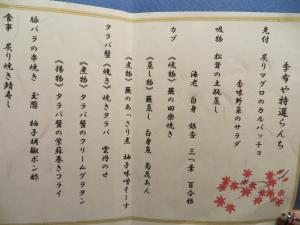 季寄や特選らんち
先付 炙りマグロのカルパッチョ
香味野菜のサラダ
吸物 松茸の土瓶蒸し
海老 白身 銀杏 三つ葉 百合根
カブ 《焼物》 蕪の田楽焼き
《蒸し物》 蕪蒸し 白身魚 菊花あん
《煮物》 蕪のあっさり煮 柚子味噌そーす
タラバ蟹 《焼き》 焼きタラバ 雲丹のせ
《煮物》 タラバ蟹のクリームグラタン
《揚物》 タラバ蟹の紫蘇巻きフライ
豚バラの串焼き 玉葱 柚子胡椒ポン酢
食事 炙り焼き鯖寿し